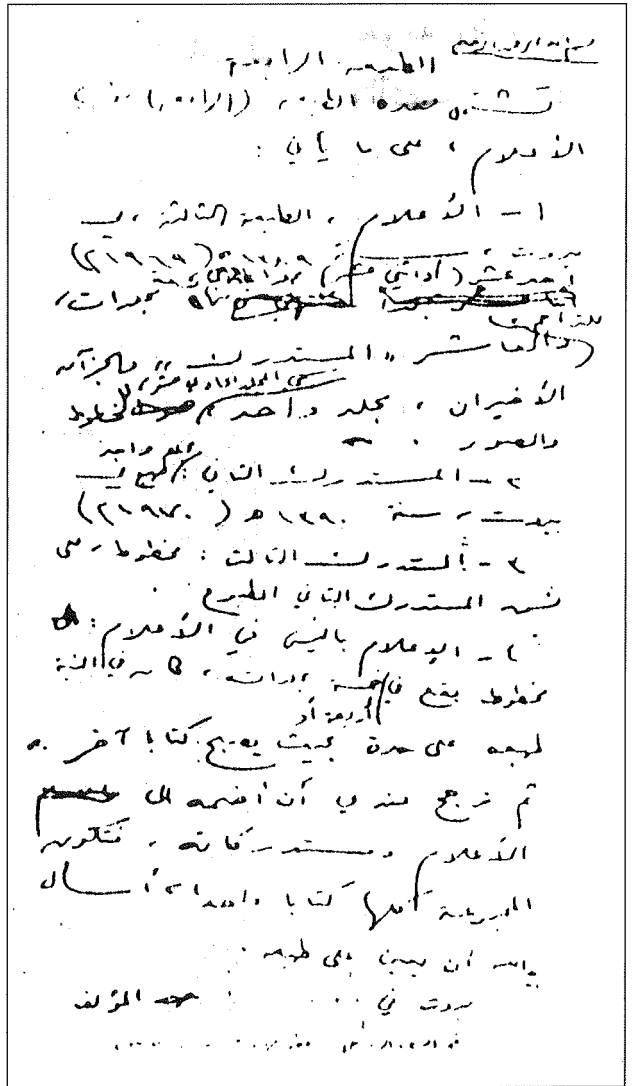 بسم الله الرحمن الرحيم
الطبعة الرابعة
تشتمل هذه الطبعة (الرابعة) من
الأعلام ، على ما يأتي :
١ - الأعلام ، الطبعة الثالثة ، في
بيروت ، ١٣٨٩ هـ (١٩٦٩ م)
أحد عشر (أو اثني عشر)
مجلدات ،
للتراجم
والعاشر «المستدرك» والجزآن
الأخيران ، مجلد واحد للخطوط
والصور .
٢ - المستدرك الثاني : طبع في
مجلد واحد
بيروت ، سنة ١٣٩٠ هـ (١٩٧٠ م)
٣ - المستدرك الثالث : مخطوط ، على
نسق المستدرك الثاني المطبوع .
٤ - الإعلام بما ليس في الأعلام :
مخطوط يقع في خمسة مجلدات ، كان في النية
أربعة أو
طبعه على حدة بحيث يصبح كتابا آخر .
ثم ترجح عندي أن أضمه الى
الأعلام ومستدركاته ، فتكون
المجموعة كلها كتابا واحدا ، أسأل
الله أن يعين على طبعه .
بيروت في . . . المؤلف